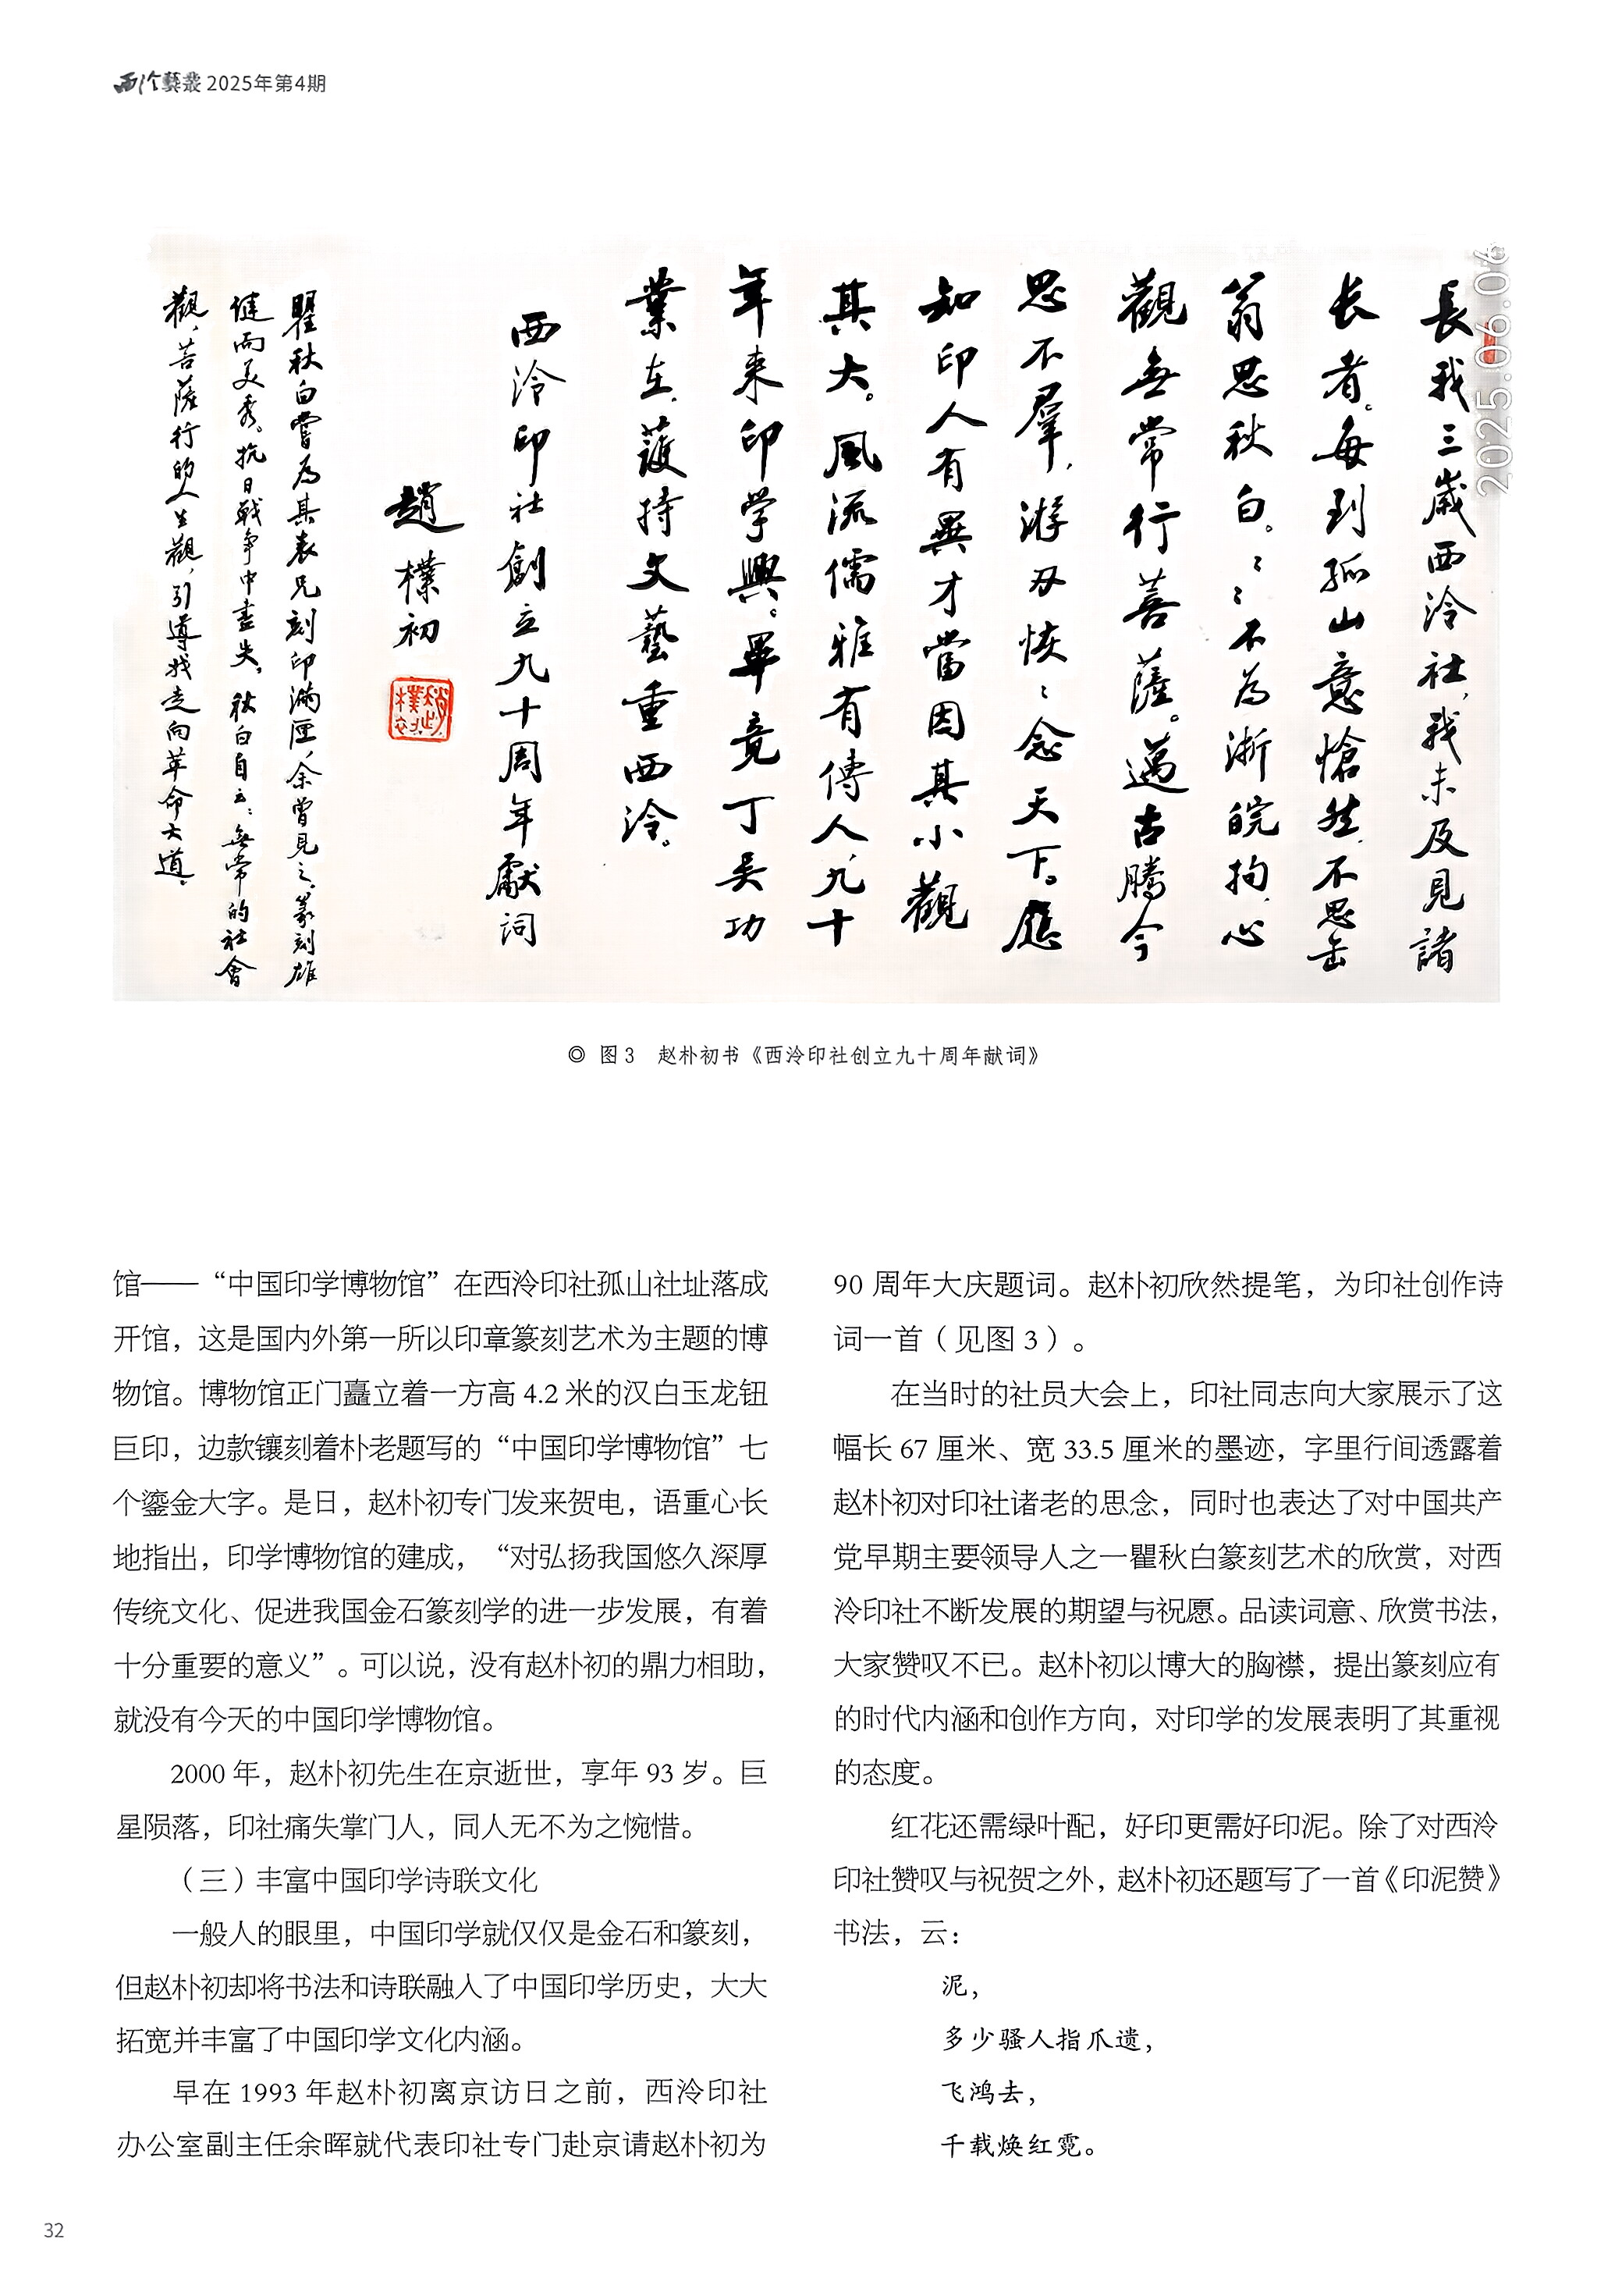 西泠藝叢 2025年第4期
長我三歲西泠社，我未及見諸
长者。每到孤山意愴然，不思缶
翁思秋白。〻〻不為浙皖拘，心
觀無常行菩薩。邁古騰今
思不羣，游刃恢〻念天下。應
知印人有異才當因其小觀
其大。風流儒雅有傳人，九十
年来印学興。畢竟丁吴功
業在，護持文藝重西泠。
西泠印社創立九十周年獻词
趙樸初
瞿秋白嘗為其表兄刻印满匣，余曾見之，篆刻雄
健而美秀。抗日戰争中盡失。秋白自云：無常的社會
觀，菩薩行的人生觀，引導我走向革命大道。
2025.06.06
◎ 图3 赵朴初书《西泠印社创立九十周年献词》
馆——“中国印学博物馆”在西泠印社孤山社址落成
开馆，这是国内外第一所以印章篆刻艺术为主题的博
物馆。博物馆正门矗立着一方高 4.2 米的汉白玉龙钮
巨印，边款镶刻着朴老题写的“中国印学博物馆”七
个鎏金大字。是日，赵朴初专门发来贺电，语重心长
地指出，印学博物馆的建成，“对弘扬我国悠久深厚
传统文化、促进我国金石篆刻学的进一步发展，有着
十分重要的意义”。可以说，没有赵朴初的鼎力相助，
就没有今天的中国印学博物馆。
2000 年，赵朴初先生在京逝世，享年 93 岁。巨
星陨落，印社痛失掌门人，同人无不为之惋惜。
（三）丰富中国印学诗联文化
一般人的眼里，中国印学就仅仅是金石和篆刻，
但赵朴初却将书法和诗联融入了中国印学历史，大大
拓宽并丰富了中国印学文化内涵。
早在 1993 年赵朴初离京访日之前，西泠印社
办公室副主任余晖就代表印社专门赴京请赵朴初为
90 周年大庆题词。赵朴初欣然提笔，为印社创作诗
词一首（见图 3）。
在当时的社员大会上，印社同志向大家展示了这
幅长 67 厘米、宽 33.5 厘米的墨迹，字里行间透露着
赵朴初对印社诸老的思念，同时也表达了对中国共产
党早期主要领导人之一瞿秋白篆刻艺术的欣赏，对西
泠印社不断发展的期望与祝愿。品读词意、欣赏书法，
大家赞叹不已。赵朴初以博大的胸襟，提出篆刻应有
的时代内涵和创作方向，对印学的发展表明了其重视
的态度。
红花还需绿叶配，好印更需好印泥。除了对西泠
印社赞叹与祝贺之外，赵朴初还题写了一首《印泥赞》
书法，云：
泥，
多少骚人指爪遗，
飞鸿去，
千载焕红霓。
32